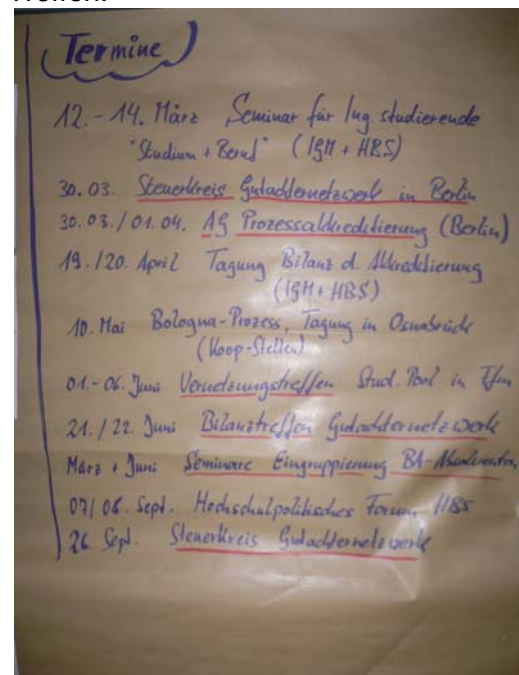 Termine
12. - 14. März Seminar für Ing. studierende
"Studium + Beruf" (IGM + HBS)
30.03. Steuerkreis Gutachternetzwerk in Berlin
30.03./01.04. AG Prozessakkreditierung (Berlin)
19./20. April Tagung Bilanz d. Akkreditierung
(IGM + HBS)
10. Mai Bologna-Prozess, Tagung in Osnabrück
(Koop-Stellen)
01.-06. Juni Vernetzungstreffen Stud. Pool in
21./22. Juni Bilanztreffen Gutachternetzwerk
März + Juni Seminare Eingruppierung BA-Absolventen
07/08. Sept. Hochschulpolitisches Forum HBS
26. Sept. Steuerkreis Gutachternetzwerk